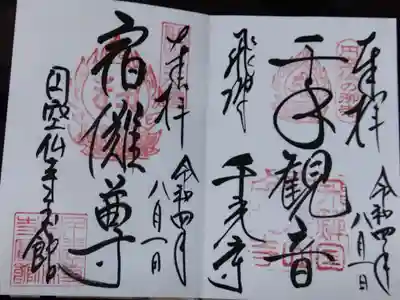 奉拝
令和四年
八月一日
千手観音
飛騨
千光寺
奉拝
令和四年
八月一日
宿儺尊
円空仏寺宝館